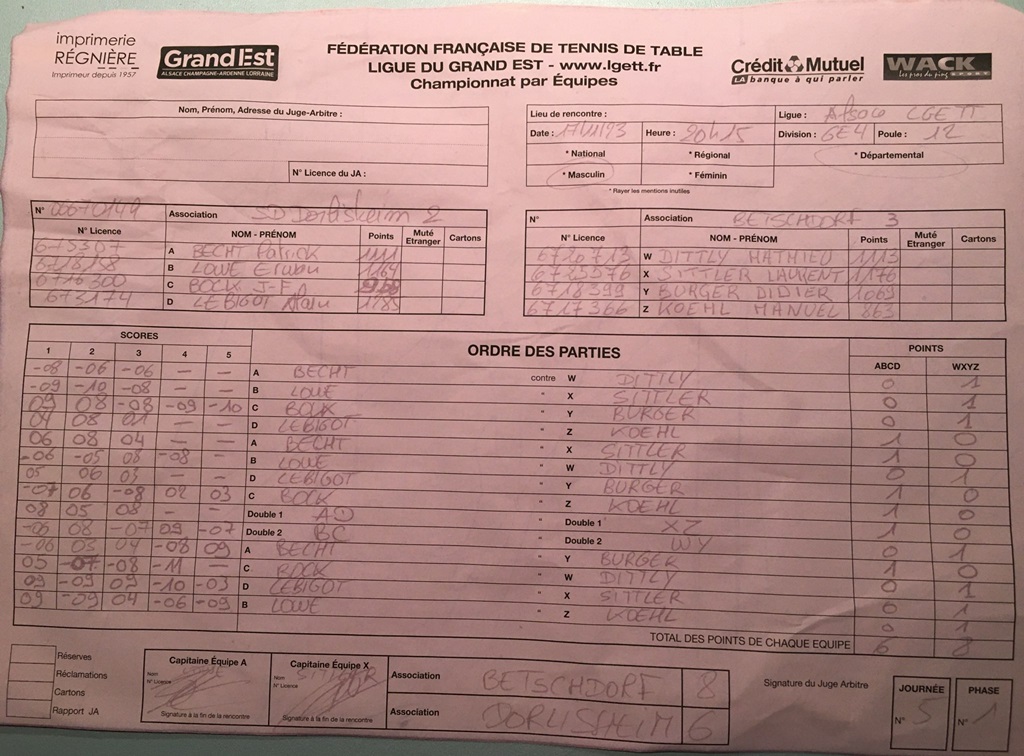 imprimerie
RÉGNIÈRE
Imprimeur depuis 1957
GrandEst
ALSACE CHAMPAGNE-ARDENNE LORRAINE
FÉDÉRATION FRANÇAISE DE TENNIS DE TABLE
LIGUE DU GRAND EST - www.lgett.fr
Championnat par Équipes
Crédit Mutuel
LA banque à qui parler
WACK
Nom, Prénom, Adresse du Juge-Arbitre :
N° Licence du JA :
Lieu de rencontre : Ligue : LGETT
Date : Heure : 20h15 Division : GE4 Poule : 12
* National * Régional * Départemental
* Masculin * Féminin
* Rayer les mentions inutiles
N° 00670149 Association SD Dorlisheim 2
N° Licence NOM - PRÉNOM Points Muté Etranger Cartons
675307 A BECHT Patrick 1111
6718158 B LOUE Erwan 1164
6716300 C BOCK J-F
673174 D LEBIGOT Alain 1185
N° Association BETSCHDORF 3
N° Licence NOM - PRÉNOM Points Muté Etranger Cartons
6720713 W DITTLY MATHIEU 1113
6725576 X SITTLER LAURENT 1176
6718399 Y BURGER DIDIER 1069
6717366 Z KOEHL MANUEL 863
SCORES ORDRE DES PARTIES POINTS
1 2 3 4 5 ABCD WXYZ
-08 -06 -06 — — A BECHT contre W DITTLY 0 1
-09 -10 -08 — — B LOUE " X SITTLER 0 1
09 08 -08 -09 -10 C BOCK " Y BURGER 0 1
04 08 01 — — D LEBIGOT " Z KOEHL 1 0
06 08 04 — — A BECHT " X SITTLER 1 0
-06 -05 08 -08 — B LOUE " W DITTLY 0 1
05 06 03 — — D LEBIGOT " Y BURGER 1 0
-07 06 -08 02 03 C BOCK " Z KOEHL 1 0
08 05 08 — — Double 1 AD " Double 1 XZ 1 0
-06 08 -07 09 -07 Double 2 BC " Double 2 WY 0 1
-06 05 04 -08 09 A BECHT " Y BURGER 1 0
05 -07 -08 -11 — C BOCK " W DITTLY 0 1
09 -09 09 -10 -03 D LEBIGOT " X SITTLER 0 1
09 -09 04 -06 -09 B LOUE " Z KOEHL 0 1
TOTAL DES POINTS DE CHAQUE EQUIPE 6 8
Réserves
Réclamations
Cartons
Rapport JA
Capitaine Équipe A
Nom
N° Licence
Signature à la fin de la rencontre
Capitaine Équipe X
Nom SITTLER
N° Licence
Signature à la fin de la rencontre
Association BETSCHDORF 8
Association DORLISHEIM 6
Signature du Juge Arbitre
JOURNÉE
N° 5
PHASE
N° 1